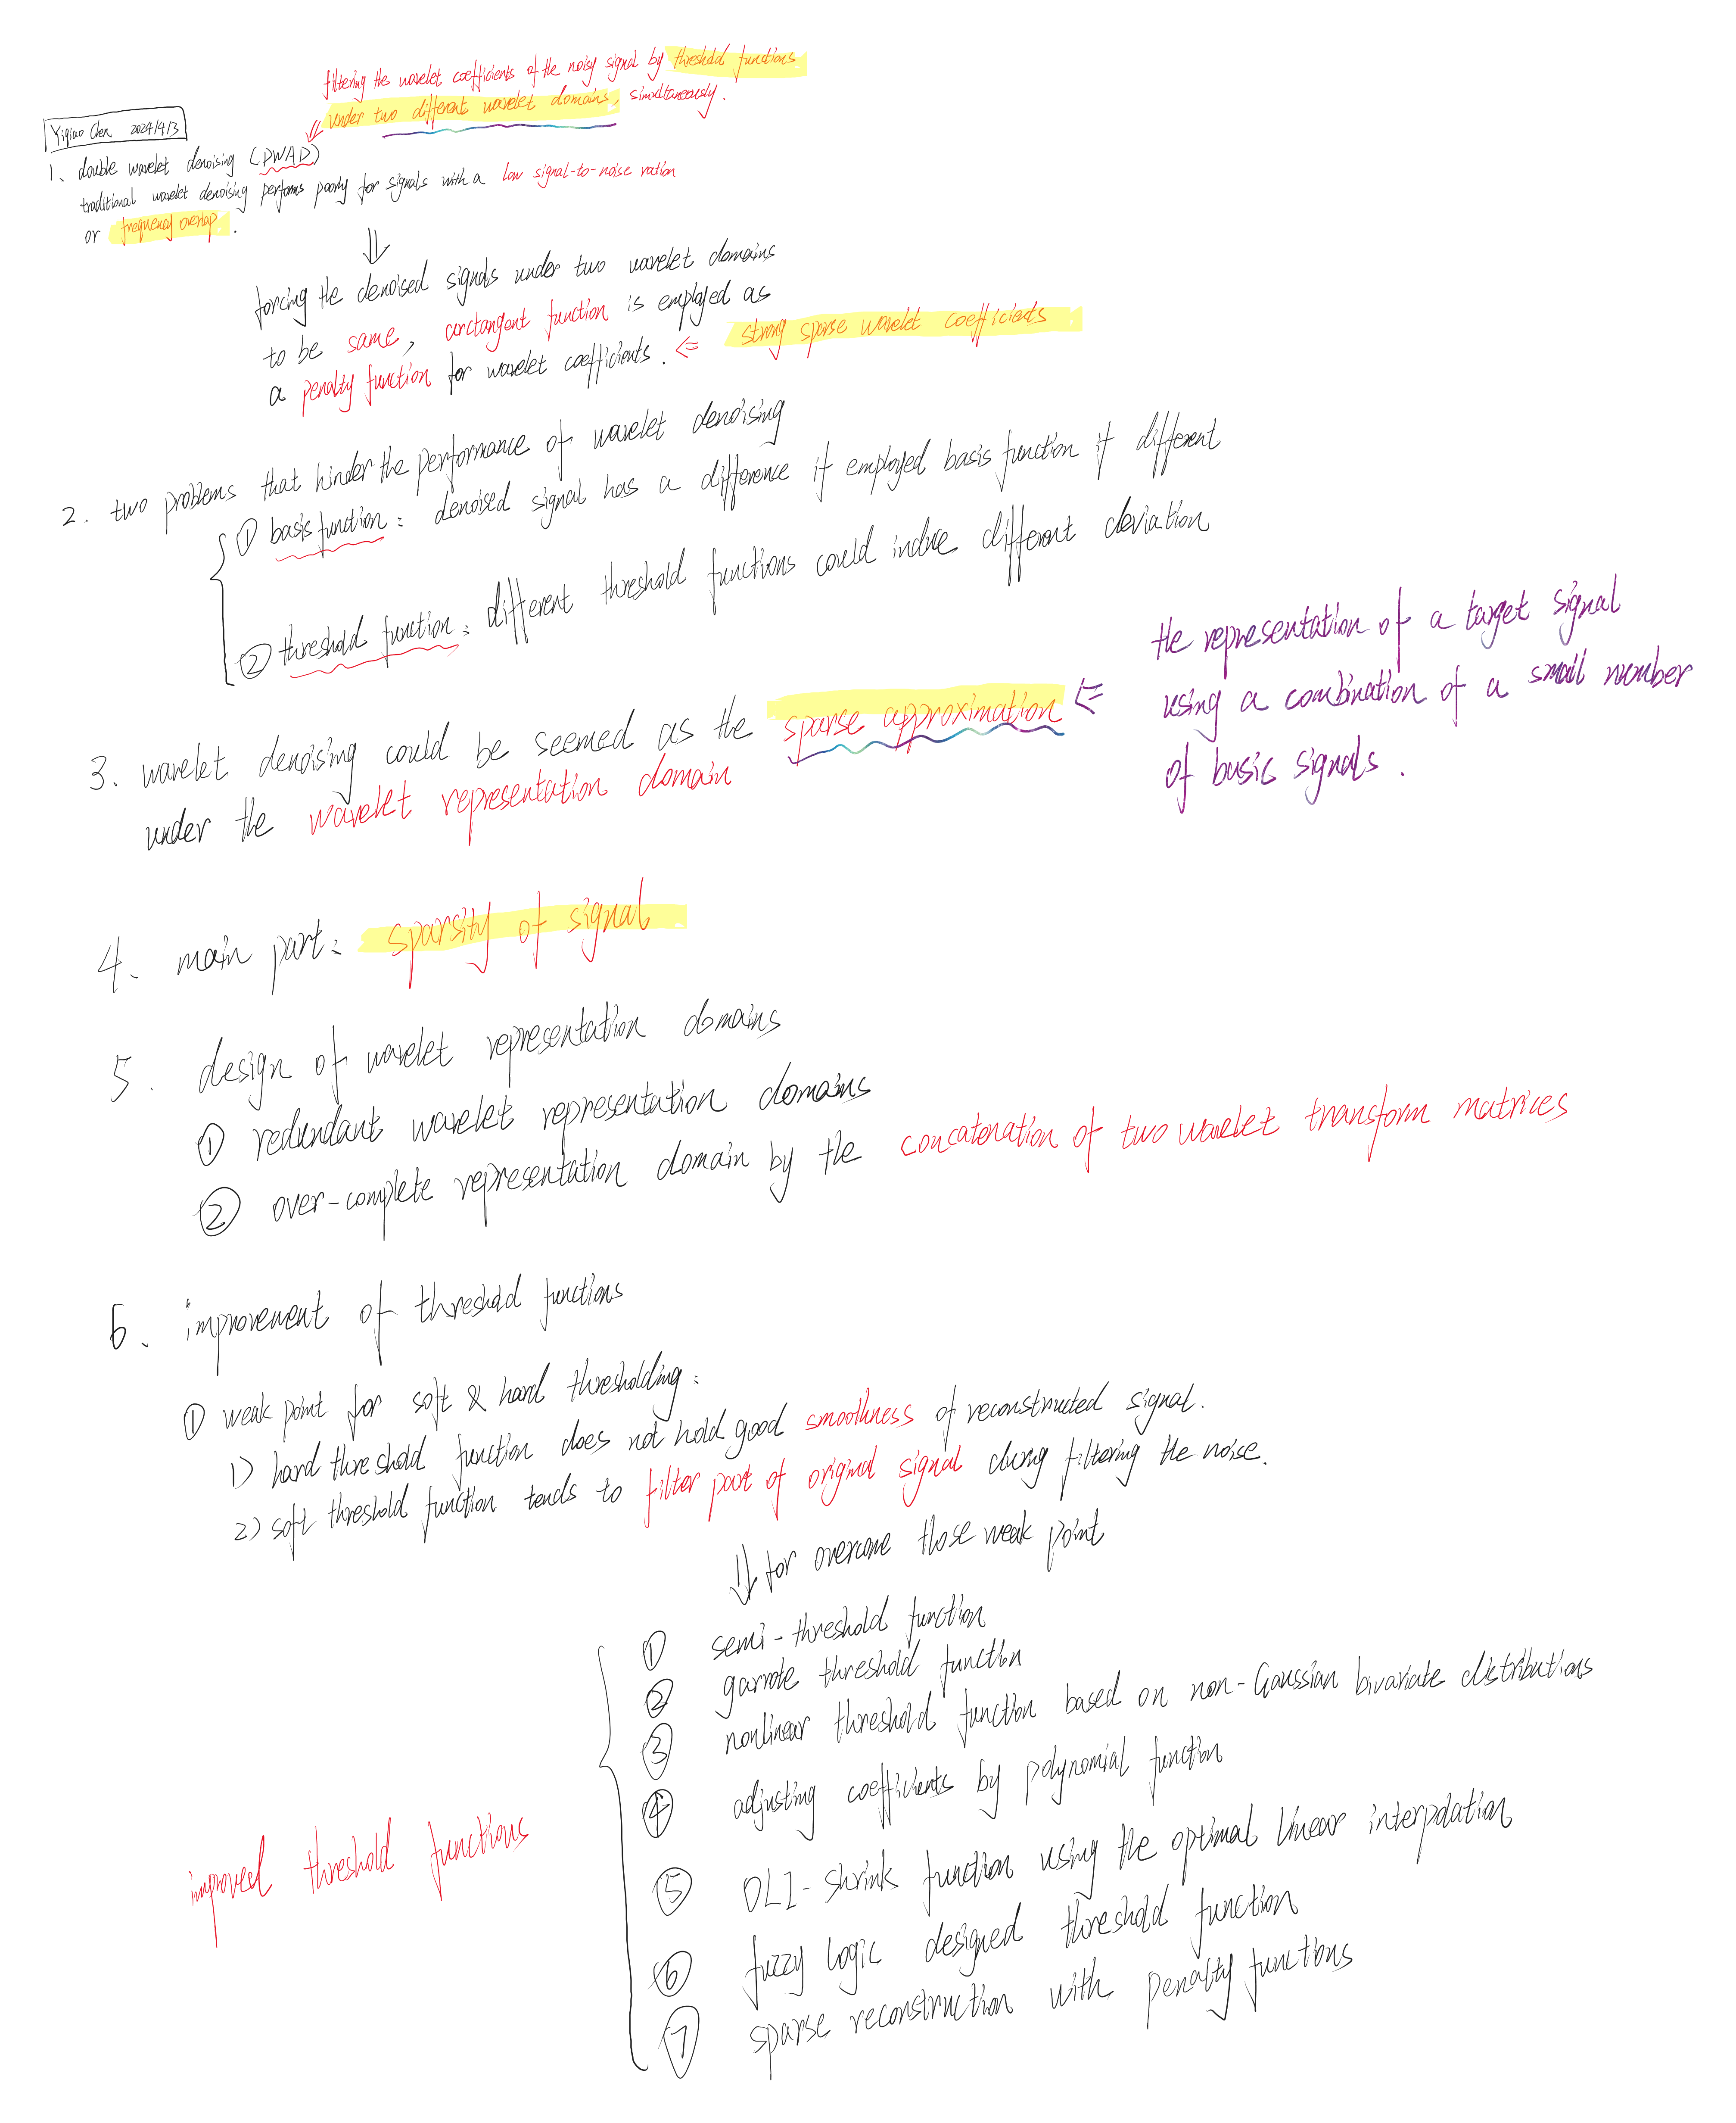 filtering the wavelet coefficients of the noisy signal by threshold functions
under two different wavelet domains, simultaneously.
Yiqiao Chen 2024/4/3
1、double wavelet denoising (DWAD)
traditional wavelet denoising performs poorly for signals with a low signal-to-noise ration
or frequency overlap.
⇓
forcing the denoised signals under two wavelet domains
to be same, arctangent function is employed as
a penalty function for wavelet coefficients. ⇐ strong sparse wavelet coefficients
2. two problems that hinder the performance of wavelet denoising
① basis function: denoised signal has a difference if employed basis function if different
② threshold function: different threshold functions could induce different deviation
3、wavelet denoising could be seemed as the sparse approximation ⇐
under the wavelet representation domain
the representation of a target signal
using a combination of a small number
of basic signals.
4、main part: sparsity of signal
5. design of wavelet representation domains
① redundant wavelet representation domains
② over-complete representation domain by the concatenation of two wavelet transform matrices
6、improvement of threshold functions
① weak point for soft & hard thresholding:
1) hard threshold function does not hold good smoothness of reconstructed signal.
2) soft threshold function tends to filter part of original signal during filtering the noise.
⇓ for overcome those weak point
improved threshold functions
① semi-threshold function
② garrote threshold function
③ nonlinear threshold function based on non-Gaussian bivariate distributions
④ adjusting coefficients by polynomial function
⑤ OLI-shrink function using the optimal linear interpolation
⑥ fuzzy logic designed threshold function
⑦ sparse reconstruction with penalty functions